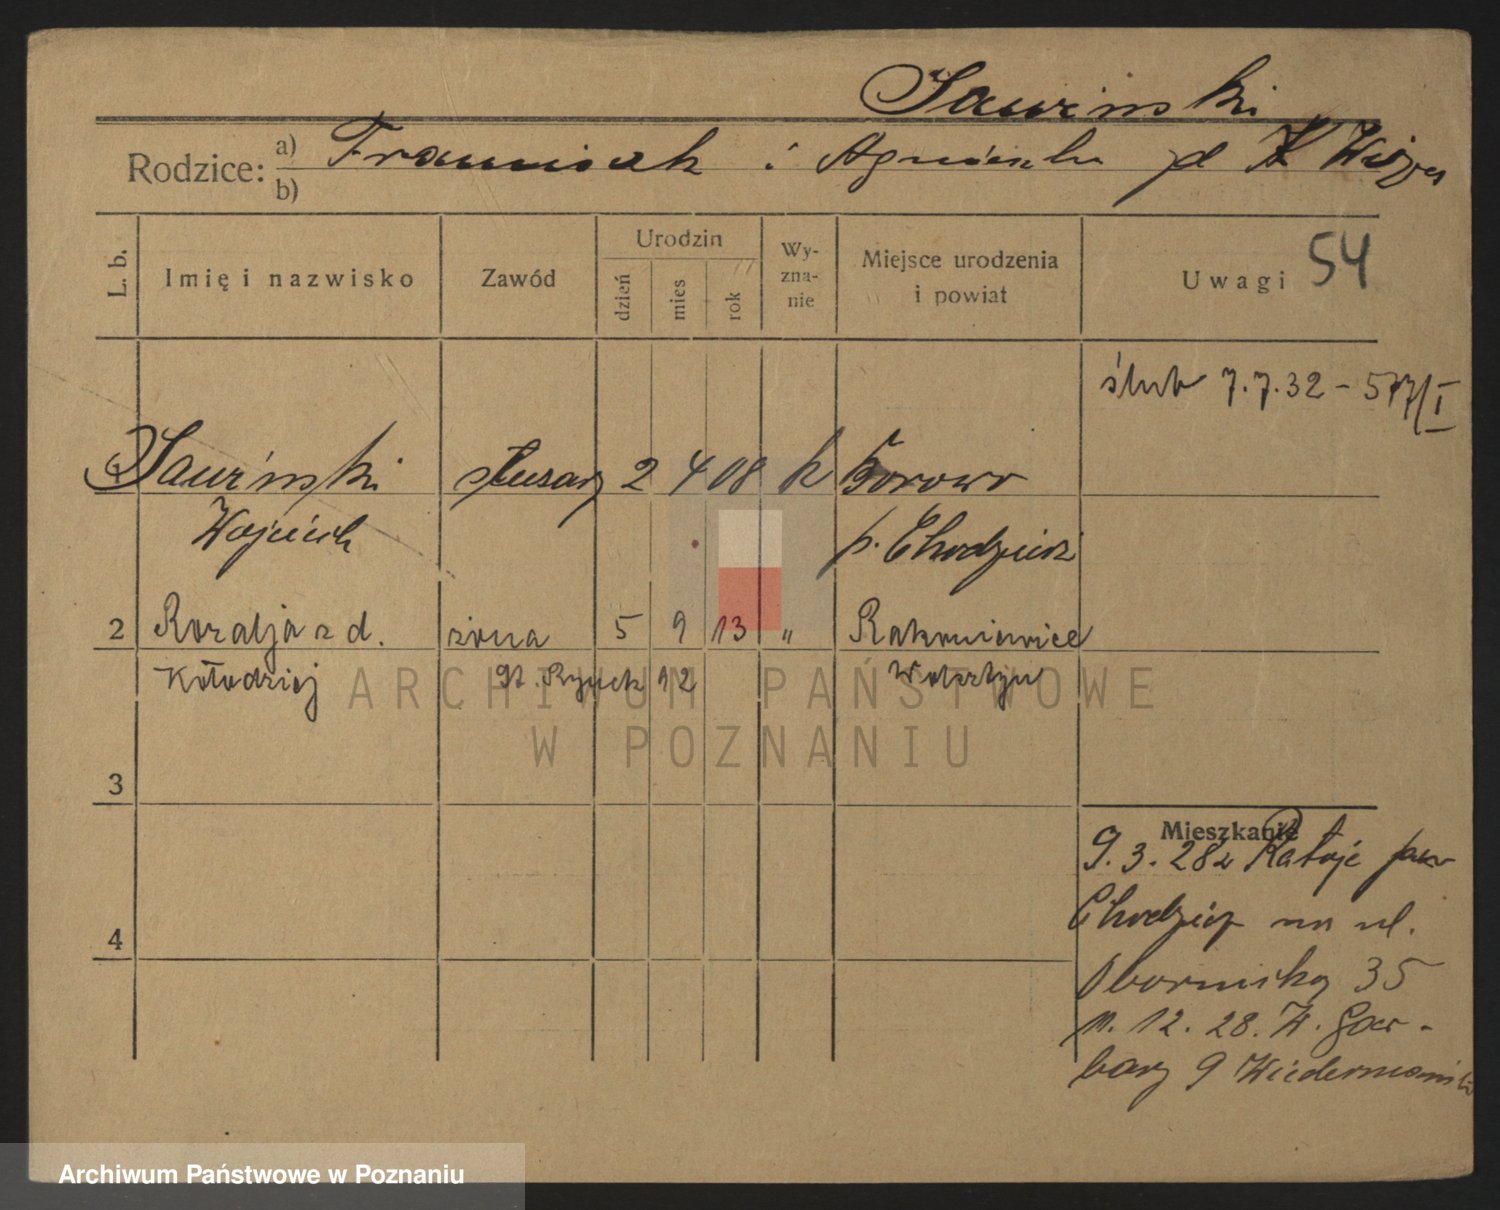 Sawiński
Rodzice: a) Franciszek i Agnieszka
b)
L. b. Imię i nazwisko Zawód Urodzin dzień mies rok Wyznanie Miejsce urodzenia i powiat Uwagi 54
ślub 7.7.32 - 577/I
Sawiński ślusarz 2 4 08 k Borowo
Wojciech p. Chodzież
2 Rozalja z d. żona 5 9 13 " Rakoniewice
Kołodziej St. Rynek 92 Wolsztyn
ARCHIWUM PAŃSTWOWE
W POZNANIU
3
Mieszkanie
9.3.28 z Rataje pow
Chodzież na ul.
4
Obornicka 35
11.12.28. W. Gar-
bary 9
Archiwum Państwowe w Poznaniu